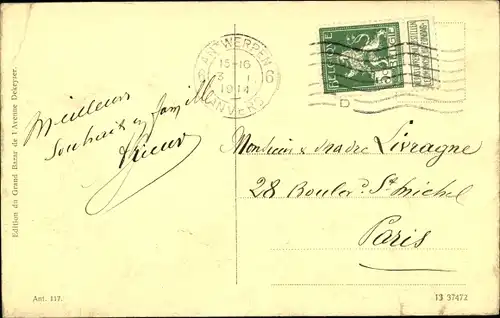 ANTWERPEN
15-16
6 3 I 6
1914
ANVERS
Meilleurs
Souhaits en famille
Monsieur & Madre Livragne
28 Boulerd. St Michel
Paris
Edition du Grand Bazar de l'Avenue Dekeyser.
Ant. 117.
13 37472